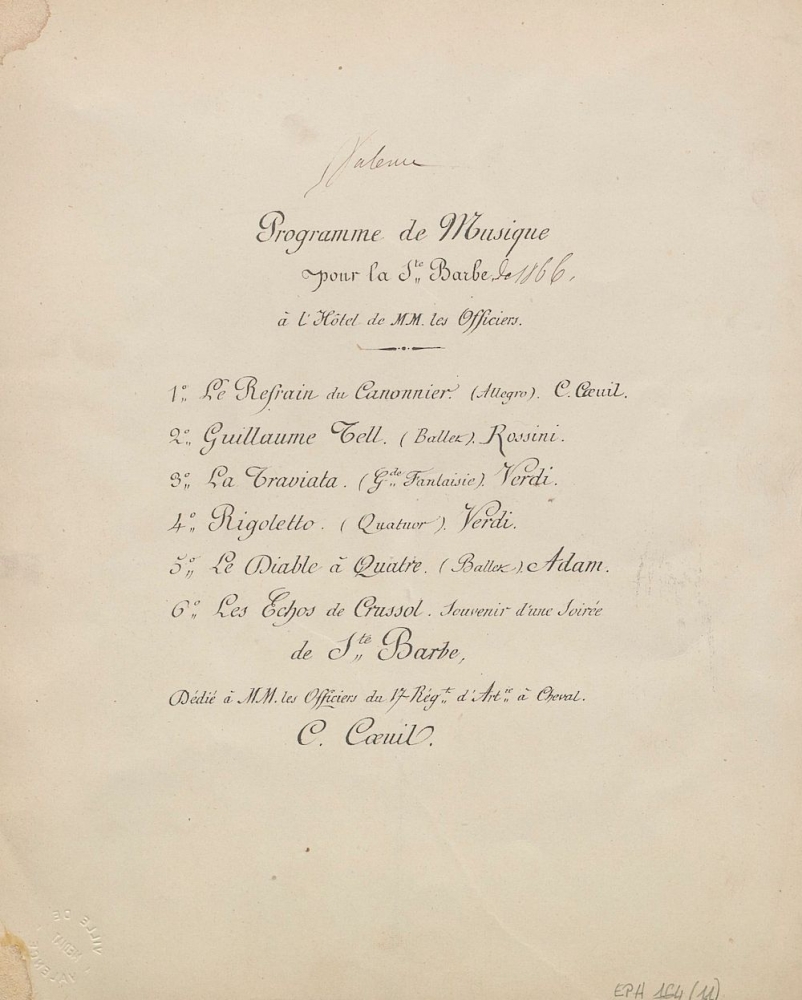 Valence
Programme de Musique
pour la Ste Barbe de 1866.
à l'Hôtel de MM. les Officiers.
1o,, Le Refrain du Canonnier. (Allegro). C. Cœuil.
2o,, Guillaume Tell. (Ballet). Rossini.
3o,, La Traviata. (Gde Fantaisie). Verdi.
4o,, Rigoletto. (Quatuor). Verdi.
5o,, Le Diable à Quatre. (Ballet). Adam.
6o,, Les Echos de Crussol. Souvenir d'une Soirée
de Ste Barbe,
Dédié à MM. les Officiers du 17 Régt d'Artie à Cheval.
C. Cœuil.
VILLE DE
VALENCE
EPH 164 (11)